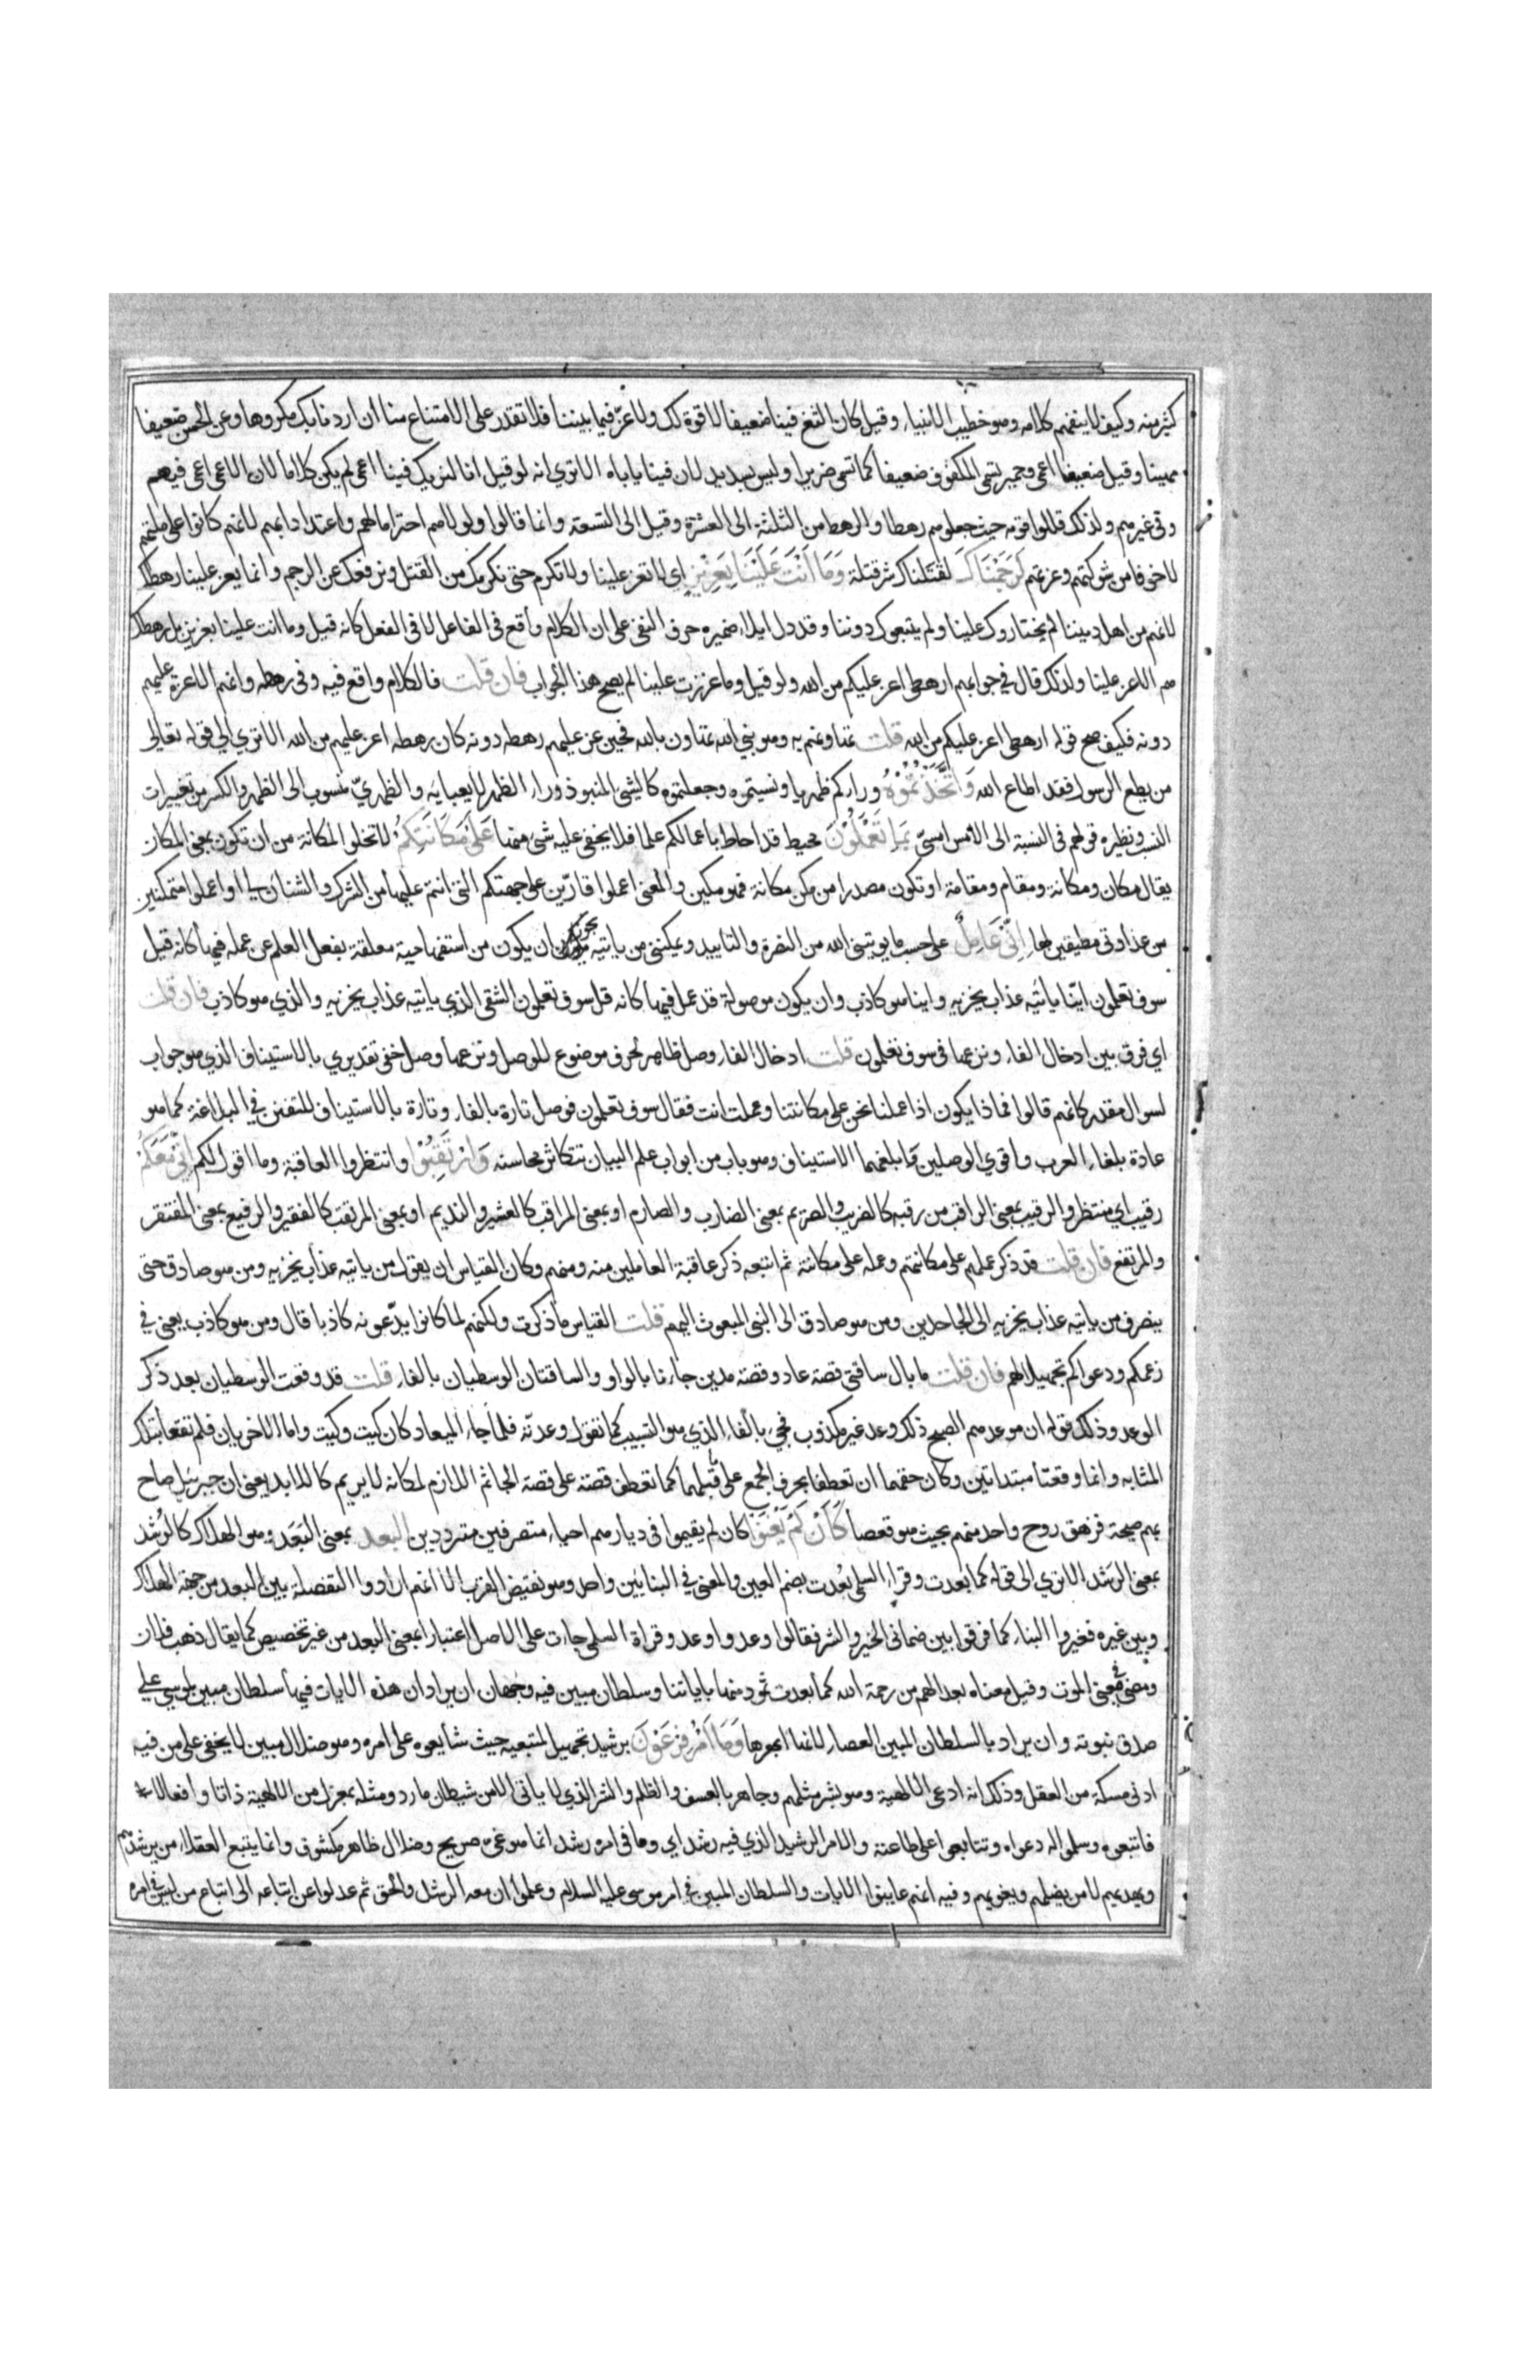 كثير منه وكيف لا يتفهم كلامه وهو خطيب الانبياء وقيل كان الثغ فينا ضعيفا لا قوة لك ولا عز فيما بيننا فلا تقدر على الامتناع منا ان اردنا بك مكروها وعن الحسن ضعيفا
مهينا وقيل ضعيفا اعمى وحمير تسمى المكفوف ضعيفا كما تسمى ضريرا وليس بسديد لان فينا ياباه الا ترى انه لو قيل انا لنريك فينا اعمى لم يكن كلاما لان الاعمى اعمى فيهم
وفي غيرهم ولذلك قللوا قومه حيث جعلوهم رهطا والرهط من الثلثة الى العشرة وقيل الى التسعة وانما قالوا ولولاهم احتراما لهم واعتدادا بهم لانهم كانوا على ملتهم
لا خوفا من شوكتهم وعزتهم لَرَجَمْنَاكَ لقتلناك شر قتلة وَمَا اَنْتَ عَلَيْنَا بِعَزِيْزٍ اي لا تعز علينا ولا تكرم حتى نكرمك من القتل ونرفعك عن الرجم وانما يعز علينا رهطك
لانهم من اهل ديننا لم يختاروك علينا ولم يتبعوك دوننا وقد دل ايلاء ضميره حرف النفى على ان الكلام واقع فى الفاعل لا فى الفعل كانه قيل وما انت علينا بعزيز بل رهطك
هم الاعزة علينا ولذلك قال في جوابهم ارهطى اعز عليكم من الله ولو قيل وما عززت علينا لم يصح هذا الجواب فان قلت فالكلام واقع فيه وفى رهطه وانهم الاعزة عليهم
دونه فكيف صح قوله ارهطى اعز عليكم من الله قلت تهاونهم به وهو نبي الله تهاون بالله فحين عز عليهم رهطه دونه كان رهطه اعز عليهم من الله الا ترى الى قوله تعالى
من يطع الرسول فقد اطاع الله وَاتَّخَذْتُمُوْهُ وراءكم ظهريا ونسيتموه وجعلتموه كالشئ المنبوذ وراء الظهر لا يعبا به والظهريّ منسوب الى الظهر والكسر من تغييرات
النسب ونظيره قولهم فى النسبة الى الامس امسىّ بِمَا تَعْمَلُوْنَ محيط قد احاط باعمالكم علما فلا يخفى عليه شئ منها عَلَى مَكَانَتِكُمْ لا تخلوا المكانة من ان تكون بمعنى المكان
يقال مكان ومكانة ومقام ومقامة او تكون مصدرا من مكن مكانة فهو مكين والمعنى اعملوا قارّين على جهتكم التى انتم عليها من الشرك والشنان لى او اعملوا متمكنين
من عداوتى مطيقين لها اِنِّى عَامِلٌ على حسب ما يوتينى الله من النصرة والتاييد ويمكننى من ياتيه يجوز ان يكون من استفهامية معلقة بفعل العلم عن عمله فيها كانه قيل
سوف تعلمون اينا ياتيه عذاب يخزيه واينا هو كاذب وان يكون موصولة قد عمل فيها كانه قيل سوف تعلمون الشقى الذي ياتيه عذاب يخزيه والذي هو كاذب فان قلت
اي فرق بين ادخال الفاء ونزعها فى سوف تعلمون قلت ادخال الفاء وصل ظاهر بحرف موضوع للوصل ونزعها وصل خفى تقديرى بالاستيناف الذي هو جواب
لسوال مقدر كانهم قالوا فماذا يكون اذا عملنا نحن على مكانتنا وعملت انت فقال سوف تعلمون فوصل تارة بالفاء وتارة بالاستيناف للتفنن فى البلاغة كما هو
عادة بلغاء العرب واقوى الوصلين وابلغهما الاستيناف وهو باب من ابواب علم البيان تتكاثر محاسنه وَارْتَقِبُوْا وانتظروا العاقبة وما اقول لكم اِنِّى مَعَكُمْ
رقيب اي منتظر والرقيب بمعنى الراقب من رقبه كالضريب والصريم بمعنى الضارب والصارم او بمعنى المراقب كالعشير والنديم او بمعنى المرتقب كالفقير والرفيع بمعنى المفتقر
والمرتفع فان قلت قد ذكر عملهم على مكانتهم وعمله على مكانته ثم اتبعه ذكر عاقبة العاملين منه ومنهم وكان القياس ان يقول من ياتيه عذاب يخزيه ومن هو صادق حتى
ينصرف من ياتيه عذاب يخزيه الى الجاحدين ومن هو صادق الى النبى المبعوث اليهم قلت القياس ما ذكرت ولكنهم لما كانوا يدّعونه كاذبا قال ومن هو كاذب يعنى في
زعمكم ودعواكم تجهيلا لهم فان قلت ما بال ساقتى قصة عاد وقصة مدين جاءتا بالواو والساقتان الوسطيان بالفاء قلت قد وقعت الوسطيان بعد ذكر
الوعد وذلك قوله ان موعدهم الصبح ذلك وعد غير مكذوب فجئ بالفاء الذي هو التسبيب كما تقول وعدته فلما جاء الميعاد كان كيت وكيت واما الاخريان فلم تقعا بتلك
المثابه وانما وقعتا مبتداتين وكان حقهما ان تعطفا بحرف الجمع على ما قبلهما كما تعطف قصة على قصة الجاثم اللازم لمكانه لا يريم كاللابد يعنى ان جبرئيل صاح
بهم صيحة فزهق روح واحد منهم بحيث هو قعصا كَاَنْ لَمْ يَغْنَوْا كان لم يقيموا فى ديارهم احياء متصرفين مترددين البعد بمعنى البَعَد وهو الهلاك كالرُشد
بمعنى الرَشَد الا ترى الى قوله كما بعدت وقراء السلمى بَعُدت بضم العين والمعنى في البنائين واحد وهو نقيض القرب الا انهم ارادوا التفصلة بين البعد من جهة الهلاك
وبين غيره فغيروا البناء كما فرقوا بين ضمانى الخير والشر فقالوا وعد واوعد وقراة السلمى جاءت على الاصل اعتبارا بمعنى البعد من غير تخصيص كما يقال ذهب فلان
ومضى فى معنى الموت وقيل معناه بعدا لهم من رحمة الله كما بعدت ثمود منها باياتنا وسلطان مبين فيه وجهان ان يراد ان هذه الايات فيها سلطان مبين لموسى على
صدق نبوته وان يراد بالسلطان المبين العصا لانها ابهرها وَمَا اَمْرُ فِرْعَوْنَ برشيد تجهيل لمتبعيه حيث شايعوه على امره وهو ضلال مبين لا يخفى على من فيه
ادنى مسكة من العقل وذلك انه ادعى الالهية وهو بشر مثلهم وجاهر بالعسف والظلم والشر الذي لا ياتى الا من شيطان مارد ومثله بمعزل من الالهية ذاتا وافعالا
فاتبعوه وسلموا له دعواه وتتابعوا على طاعته والامر الرشيد الذي فيه رشد اي وما فى امره رشد انما هو غى صريح وضلال ظاهر مكشوف وانما يتبع العقلاء من يرشدهم
ويهديهم لا من يضلهم ويغويهم وفيه انهم عاينوا الايات والسلطان المبين فى امر موسى عليه السلام وعلموا ان معه الرشد والحق ثم عدلوا عن اتباعه الى اتباع من ليس فى امره